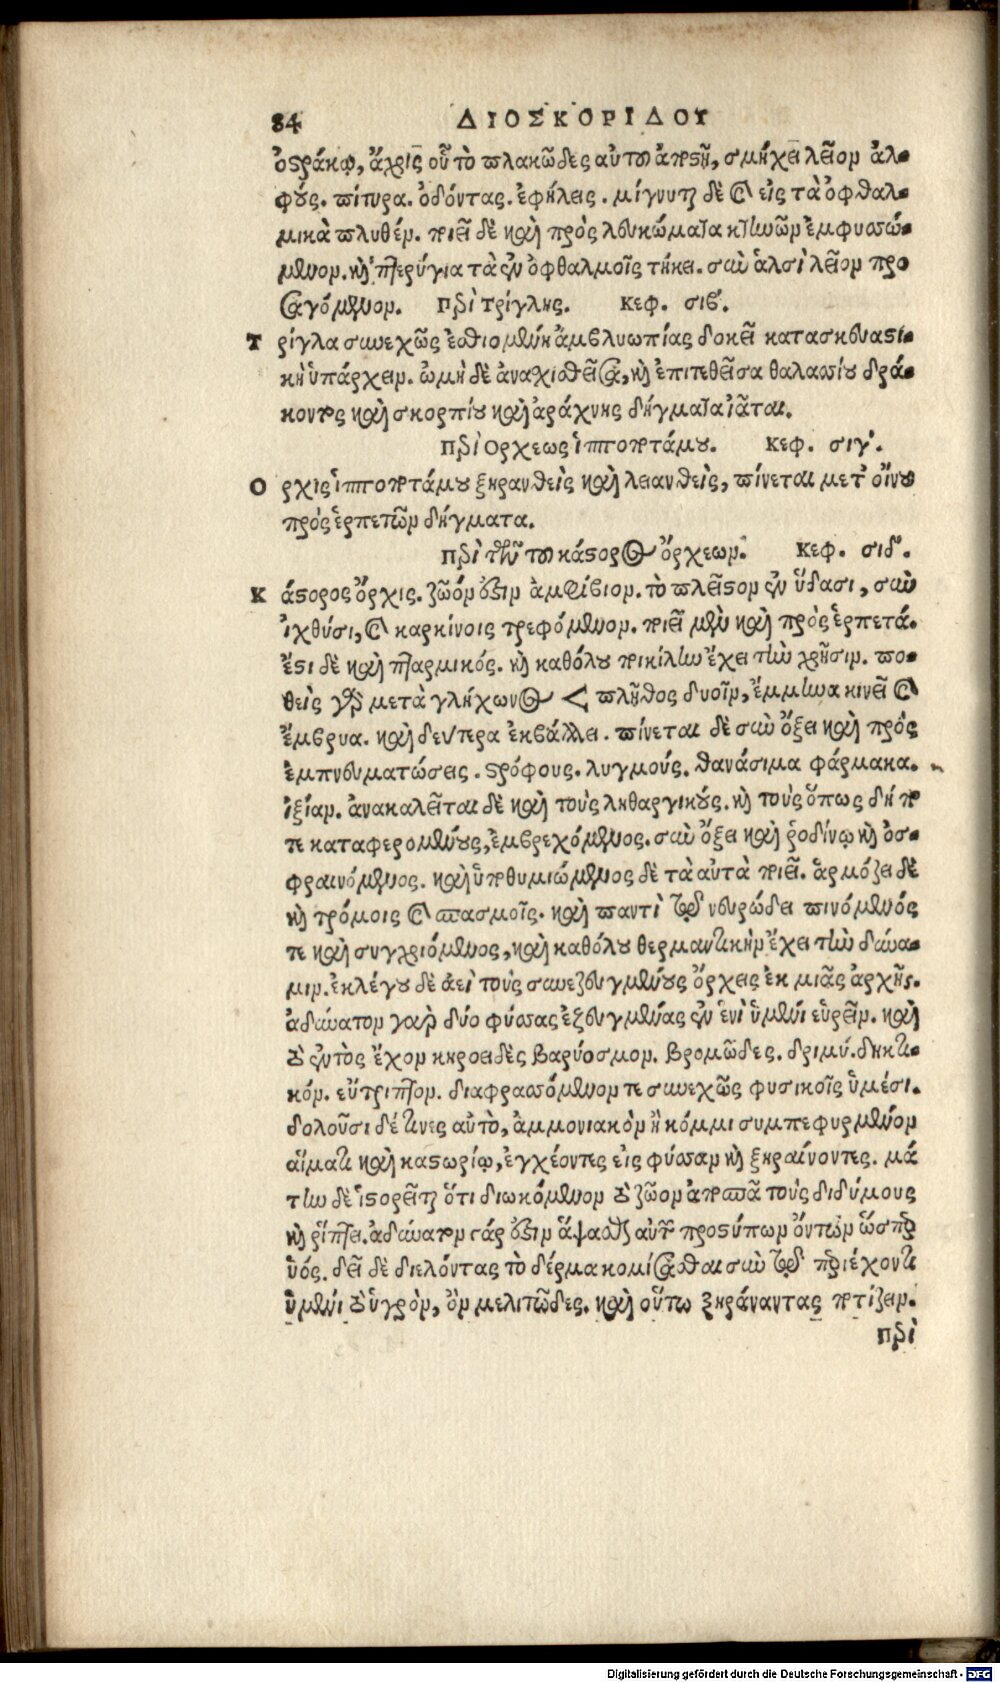 84 ΔΙΟΣΚΟΡΙΔΟΥ
ὀστράκῳ, ἄχρις οὗ τὸ πλακῶδες αὐτοῦ ἀποστῇ, σμήχει λεῖον ἀλ-
φούς. πίτυρα. ὀδόντας. ἐφήλεις. μίγνυται δὲ καὶ εἰς τὰ ὀφθαλ-
μικὰ πλυθέν. ποιεῖ δὲ καὶ πρὸς λευκώματα κτηνῶν ἐμφυσώ-
μενον. καὶ πτερύγια τὰ ἐν ὀφθαλμοῖς τήκει. σὺν ἁλσὶ λεῖον προ
σαγόμενον. περὶ τρίγλης. κεφ. σιβ΄.
Τρίγλα συνεχῶς ἐσθιομένη ἀμβλυωπίας δοκεῖ κατασκευαστι-
κὴ ὑπάρχειν. ὠμὴ δὲ ἀνασχισθεῖσα, καὶ ἐπιτεθεῖσα θαλασσίου δρά-
κοντος καὶ σκορπίου καὶ ἀράχνης δήγματα ἰᾶται.
περὶ Ορχεως ἱπποποτάμου. κεφ. σιγ΄.
Ορχις ἱπποποτάμου ξηρανθεὶς καὶ λεανθεὶς, πίνεται μετ' οἴνου
πρὸς ἑρπετῶν δήγματα.
περὶ τῶν τοῦ κάστορος ὄρχεων. κεφ. σιδ΄.
Κάστορος ὄρχις. ζῶόν ἐστιν ἀμφίβιον. τὸ πλεῖστον ἐν ὕδασι, σὺν
ἰχθύσι, καὶ καρκίνοις τρεφόμενον. ποιεῖ μὲν καὶ πρὸς ἑρπετά.
ἔστι δὲ καὶ πταρμικός. καὶ καθόλου ποικίλην ἔχει τὴν χρῆσιν. πο-
θεὶς γὰρ μετὰ γλήχωνος < πλῆθος δυοῖν, ἔμμηνα κινεῖ καὶ
ἔμβρυα. καὶ δεύτερα ἐκβάλλει. πίνεται δὲ σὺν ὄξει καὶ πρὸς
ἐμπνευματώσεις. στρόφους. λυγμούς. θανάσιμα φάρμακα.
ἰξίαν. ἀνακαλεῖται δὲ καὶ τοὺς ληθαργικούς. καὶ τοὺς ὅπως δήπο
τε καταφερομένους, ἐμβρεχόμενος. σὺν ὄξει καὶ ῥοδίνῳ καὶ ὀσ-
φραινόμενος. καὶ ὑποθυμιώμενος δὲ τὰ αὐτὰ ποιεῖ. ἁρμόζει δὲ
καὶ τρόμοις καὶ σπασμοῖς. καὶ παντὶ τῷ νευρώδει πινόμενός
τε καὶ συγχριόμενος, καὶ καθόλου θερμαντικὴν ἔχει τὴν δύνα-
μιν. ἐκλέγου δὲ ἀεὶ τοὺς συνεζευγμένους ὄρχεις ἐκ μιᾶς ἀρχῆς.
ἀδύνατον γαὰρ δύο φύσας ἐζευγμένας ἐν ἑνὶ ὑμένι εὑρεῖν. καὶ
τὸ ἐντὸς ἔχον κηροειδὲς βαρύοσμον. βρομῶδες. δριμύ. δηκτι-
κόν. εὔτριπτον. διαφρασσόμενον τε συνεχῶς φυσικοῖς ὑμέσι.
δολοῦσι δέ τινες αὐτὸ, ἀμμονιακὸν ἢ κόμμι συμπεφυρμένον
αἵματι καὶ καστωρίῳ, ἐγχέοντες εἰς φύσσαν καὶ ξηραίνοντες. μά
την δὲ ἱστορεῖται ὅτι διωκόμενον τὸ ζῶον ἀποσπᾷ τοὺς διδύμους
καὶ ῥίπτει. ἀδύνατον γάρ ἐστιν ἅψασθαι αὐτῶν προστύπων ὄντων ὥσπερ
ὑός. δεῖ δὲ διελόντας τὸ δέρμα κομίσασθαι σὺν τῷ περιέχοντι
ὑμένι τὸ ὑγρὸν, ὂν μελιτῶδες. καὶ οὕτω ξηράναντας ποτίζειν.
περὶ
Digitalisierung gefördert durch die Deutsche Forschungsgemeinschaft - DFG